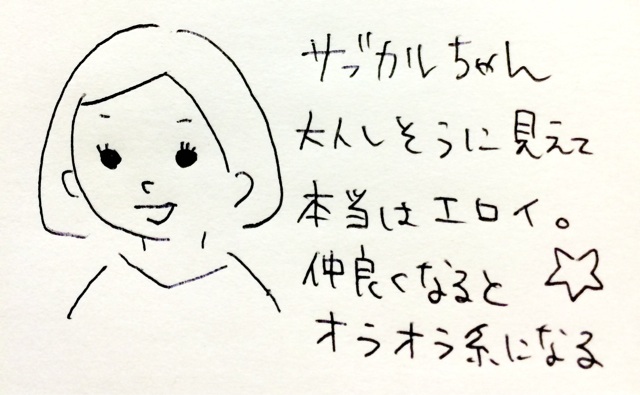 サブカルちゃん
大人しそうに見えて
本当はエロイ。
仲良くなると
オラオラ系になる